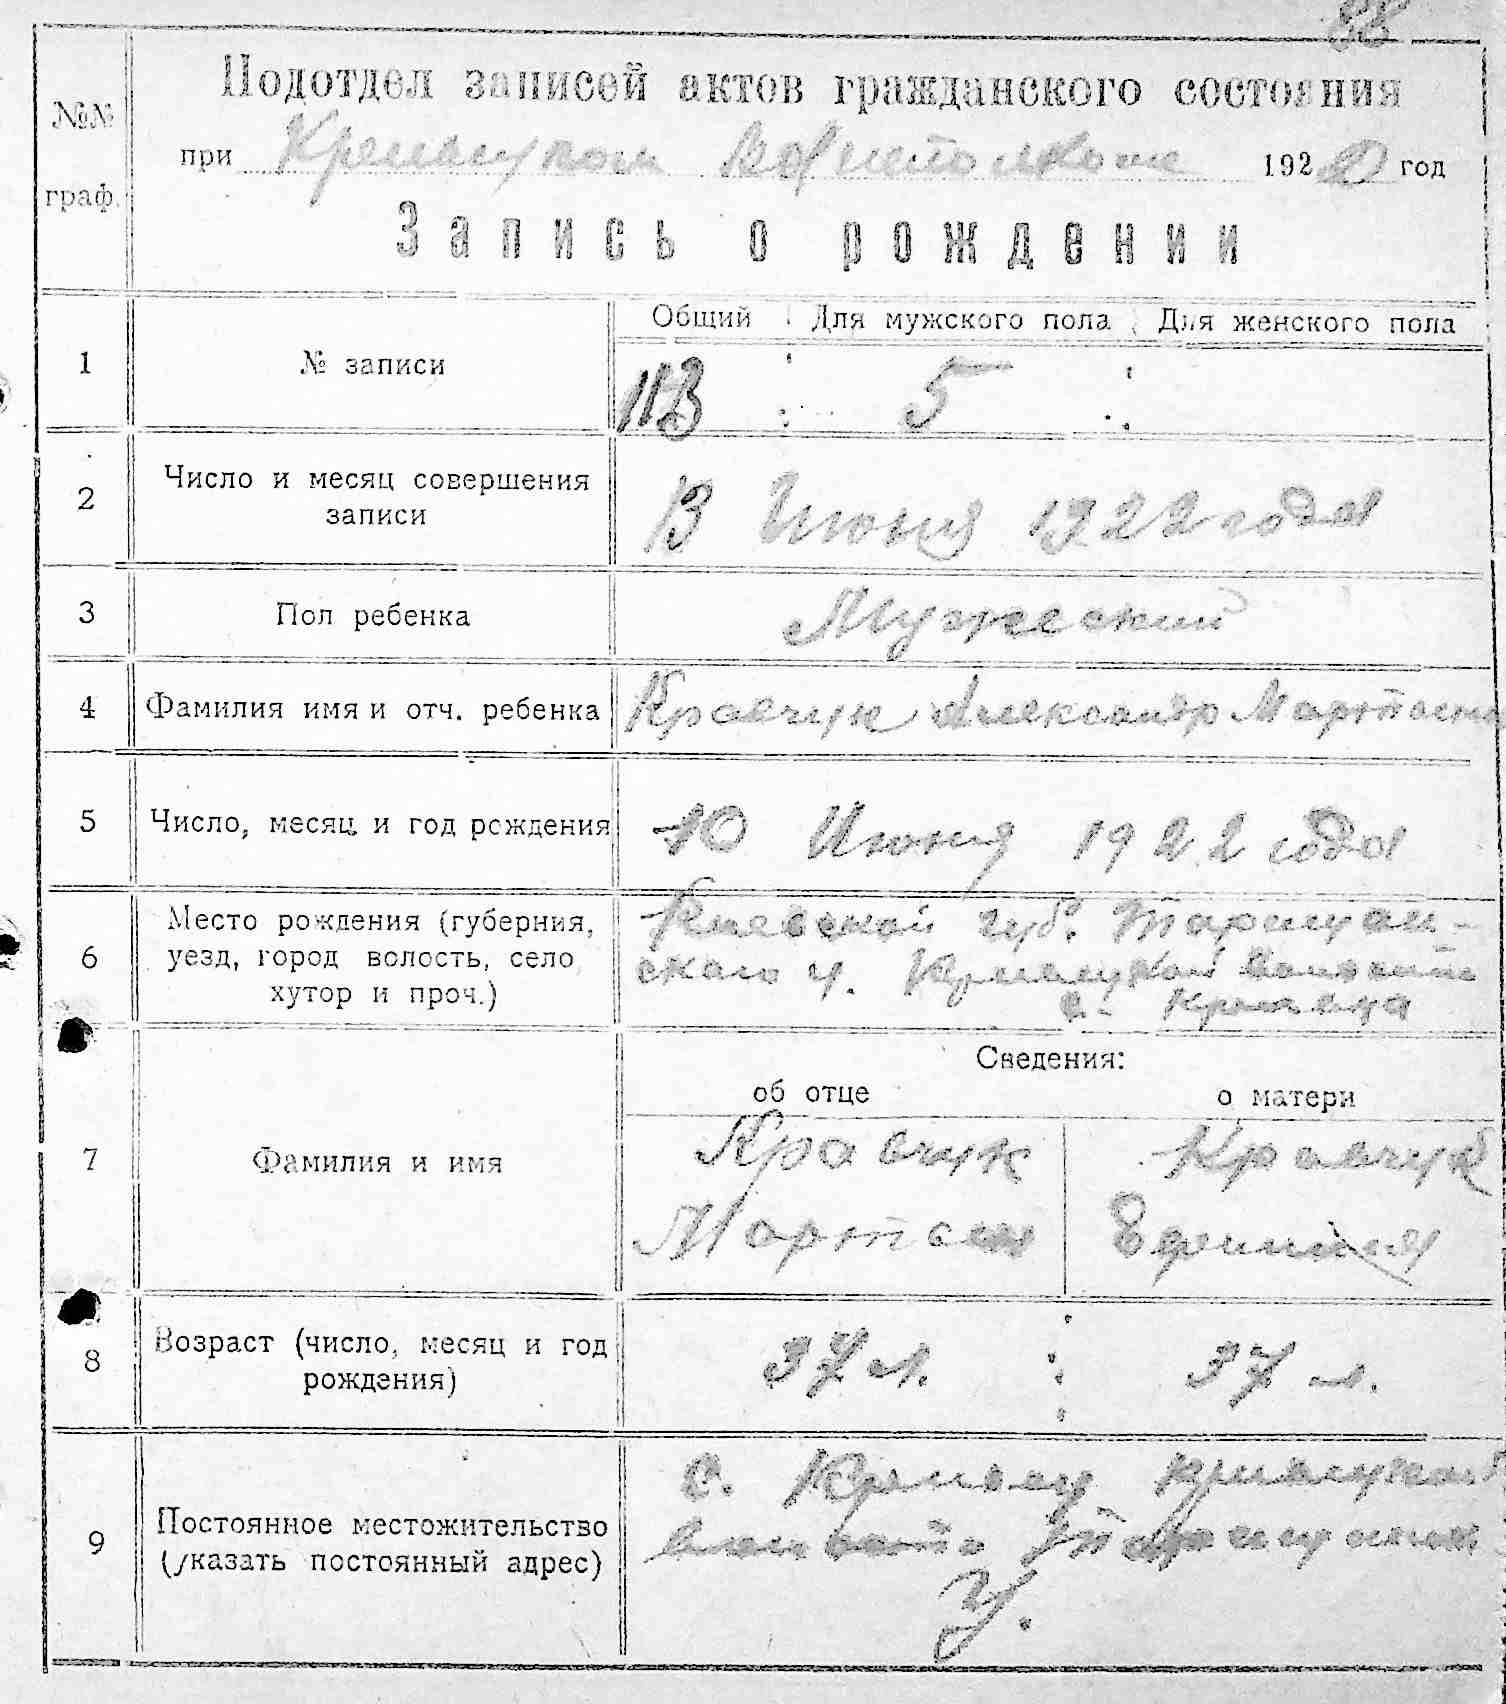 38
Подотдел записей актов гражданского состояния
№№ граф.
при 192 год
Запись о рождении
Общий Для мужского пола Для женского пола
1 № записи 5
2 Число и месяц совершения записи 13 Июня 1922 года
3 Пол ребенка Мужеский
4 Фамилия имя и отч. ребенка Кравчук Александр
5 Число, месяц и год рождения 10 Июня 1922 года
6 Место рождения (губерния, Киевской губ. Таращан-
уезд, город волость, село ского у.
хутор и проч.) с.
Сведения:
об отце о матери
7 Фамилия и имя Кравчук Кравчук
8 Возраст (число, месяц и год рождения) 37 л. 37 л.
9 Постоянное местожительство с.
(указать постоянный адрес)
У.